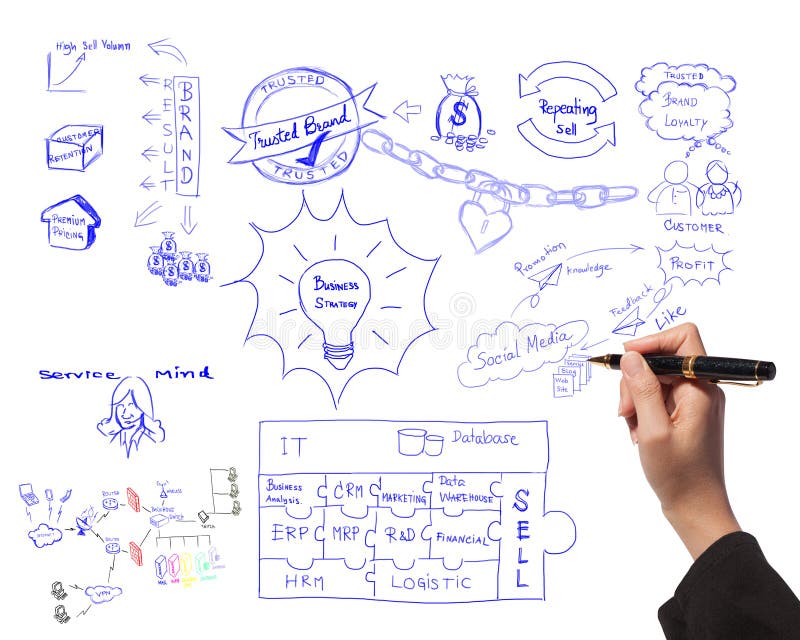 High Sell Volumn
BRAND
RESULT
CUSTOMER
RETENTION
PREMIUM
PRICING
TRUSTED
Trusted Brand
TRUSTED
$
Repeating
Sell
TRUSTED
BRAND
LOYALTY
CUSTOMER
BUSINESS
STRATEGY
Promotion
Knowledge
PROFIT
Feedback
Like
Social Media
Blog
Web
Site
Service Mind
IT
Database
Business
Analysis.
CRM
MARKETING
Data
WAREHOUSE
SELL
ERP
MRP
R&D
FINANCIAL
HRM
LOGISTIC
ROUTER
WIRELESS
SWITCH
INTERNET
ROUTER
VPN
dreamstime